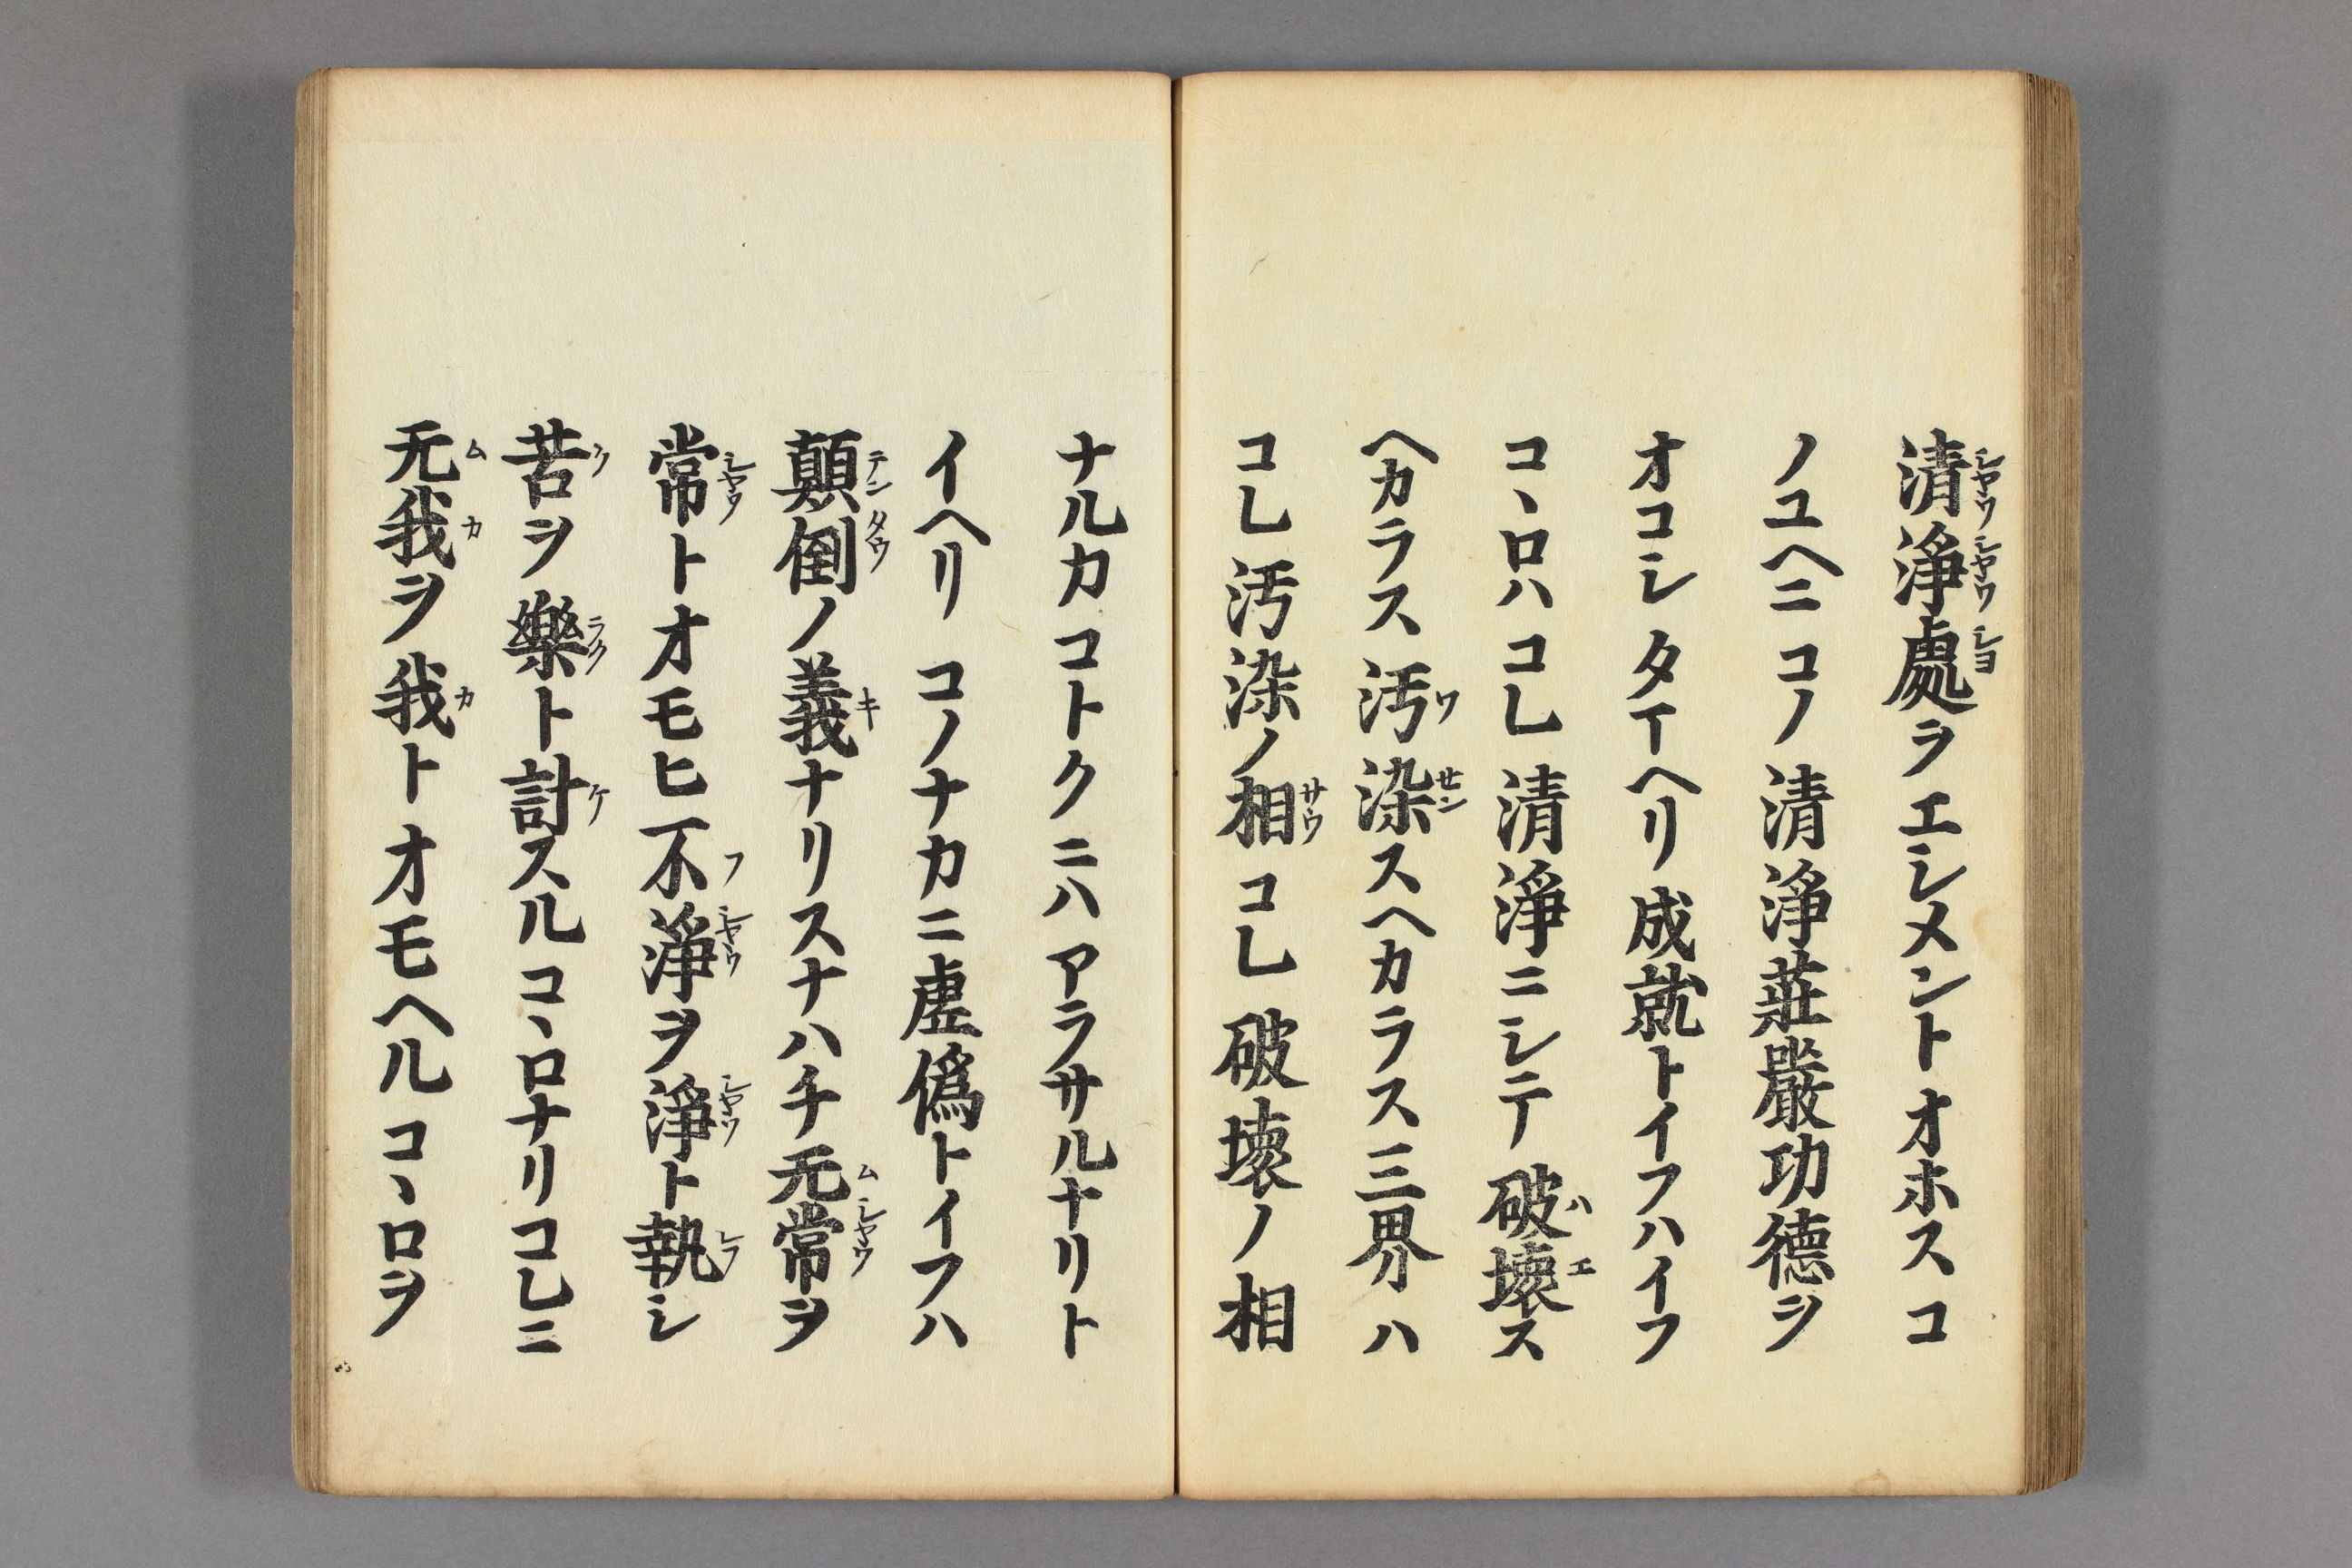 清淨處ヲエシメントオホスコ
ノユヘニコノ清淨莊嚴功德ヲ
オコシタマヘリ成就トイフハイフ
コヽロハコレ清淨ニシテ破壞ス
ヘカラス汚染スヘカラス三界ハ
コレ汚染ノ相コレ破壞ノ相
ナルカコトクニハアラサルナリト
イヘリコノナカニ虛僞トイフハ
顛倒ノ義ナリスナハチ无常ヲ
常トオモヒ不淨ヲ淨ト執シ
苦ヲ樂ト計スルコヽロナリコレニ
无我ヲ我トオモヘルコヽロヲ